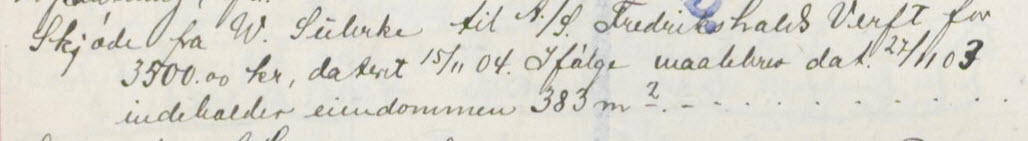 Skjøde fra W. Sührke til A/S. Fredrikshalds Verft for
3500.00 kr, datert 15/11 04. Ifølge maalebrev dat. 27/11 03
indeholder eiendommen 383 m2. - - - - - - - - - -